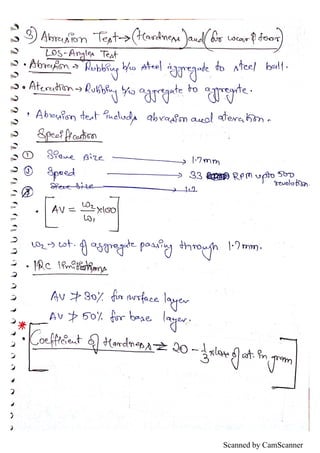 3) Abrasion Test → (Hardness) and (for wear & tear)
LOS-Angles Test
• Abrasion → Rubbing b/w steel aggregate to steel ball.
• Ateration → Rubbing b/w aggregate to aggregate.
• Abrasion test includs abrasion and ateration.
Specification
① Sieve Size → 1.7mm
② Speed → 33 RPM upto 500 revolution.
③ Sieve size → 1.7
• [AV = W2/W1 x100]
W2 → wt. of aggregate passing through 1.7mm.
• IRC limitations
AV ≯ 30% for surface layer
AV ≯ 50% for base layer.
* • [Coefficient of Hardness = 20 - 1/3 x loss of wt. in gram]
Scanned by CamScanner